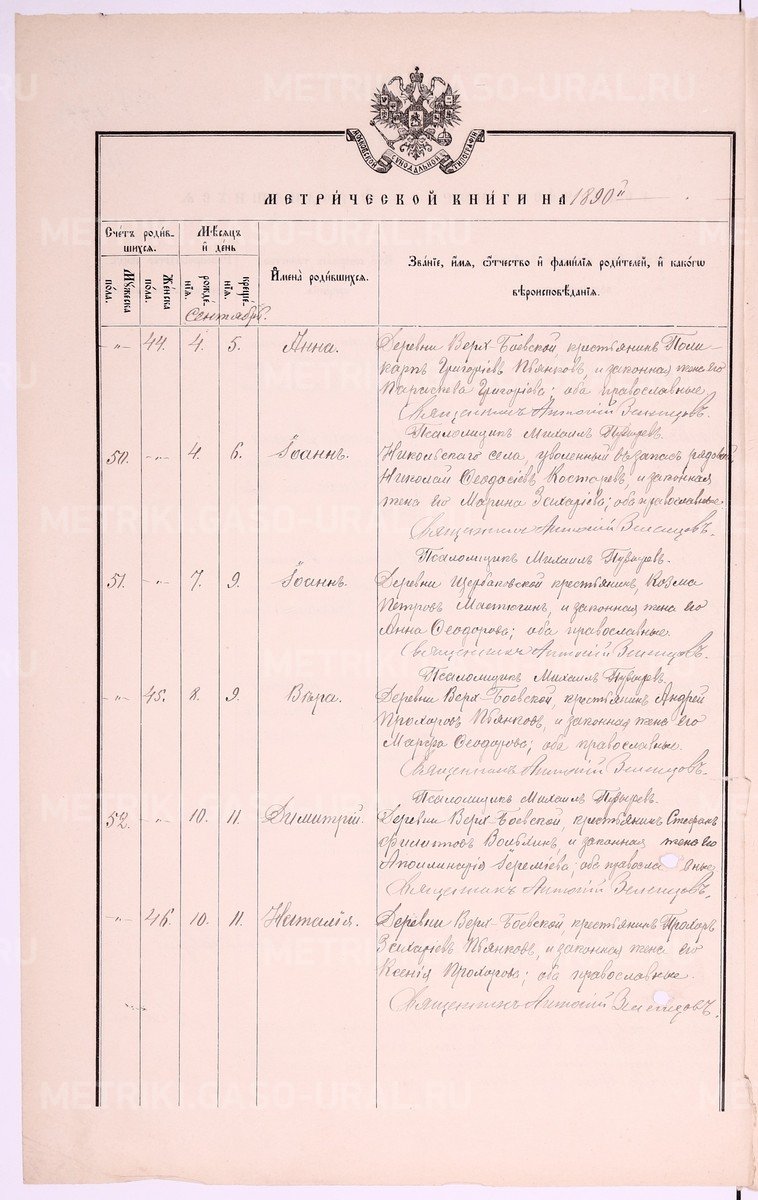 МОСКОВСКОЙ СѴНОДАЛЬНОЙ ТИПОГРАФІИ
МЕТРИ́ЧЕСКОЙ КНИ́ГИ НА 1890й
Сче́тъ роди́вшихся.
Мѣ́сяцъ и҆ де́нь
И҆мена̀ роди́вшихся.
Зва́нїе, и҆́мя, ѻ҆́тчество и҆ фами́лїя роди́телей, и҆ како́гѡ
вѣроисповѣ́данїя.
Мꙋ́жеска по́ла.
Же́нска по́ла.
рожде́нїѧ.
креще́нїѧ.
Сентябрь.
-„- 44. 4. 5. Анна. Деревни Верх-Боевской, крестьянинъ Поли-
карпъ Григоріевъ Пьянковъ, и законная жена его
Параскева Григоріева; оба православные.
Священникъ Антоній Зеленцовъ.
Псаломщикъ Михаилъ Пузыревъ.
50. -„- 4. 6. Іоаннъ. Никольскаго села, уволенный въ запасъ рядовой
Николай Ѳеодосіевъ Костаревъ, и законная
жена его Марина Захаріева; оба православные.
Священникъ Антоній Зеленцовъ.
Псаломщикъ Михаилъ Пузыревъ.
51. -„- 7. 9. Іоаннъ. Деревни Щербаковской крестьянинъ, Козма
Петровъ Мастюгинъ, и законная жена его
Анна Ѳеодорова; оба православные.
Священникъ Антоній Зеленцовъ.
Псаломщикъ Михаилъ Пузыревъ.
-„- 45. 8. 9. Вѣра. Деревни Верх-Боевской, крестьянинъ Андрей
Прохоровъ Пьянковъ, и законная жена его
Марѳа Ѳеодорова; оба православные.
Священникъ Антоній Зеленцовъ.
Псаломщикъ Михаилъ Пузыревъ.
52. -„- 10. 11. Димитрій. Деревни Верх-Боевской, крестьянинъ Стефанъ
Филипповъ и законная жена его
Аполлинарія Іереміева; оба православные
Священникъ Антоній Зеленцовъ.
-„- 46. 10. 11. Наталія. Деревни Верх-Боевской, крестьянинъ Прохоръ
Захаріевъ Пьянковъ, и законная жена его
Ксенія Прохорова; оба православные.
Священникъ Антоній Зеленцовъ.
METRIKI.GASO-URAL.RU